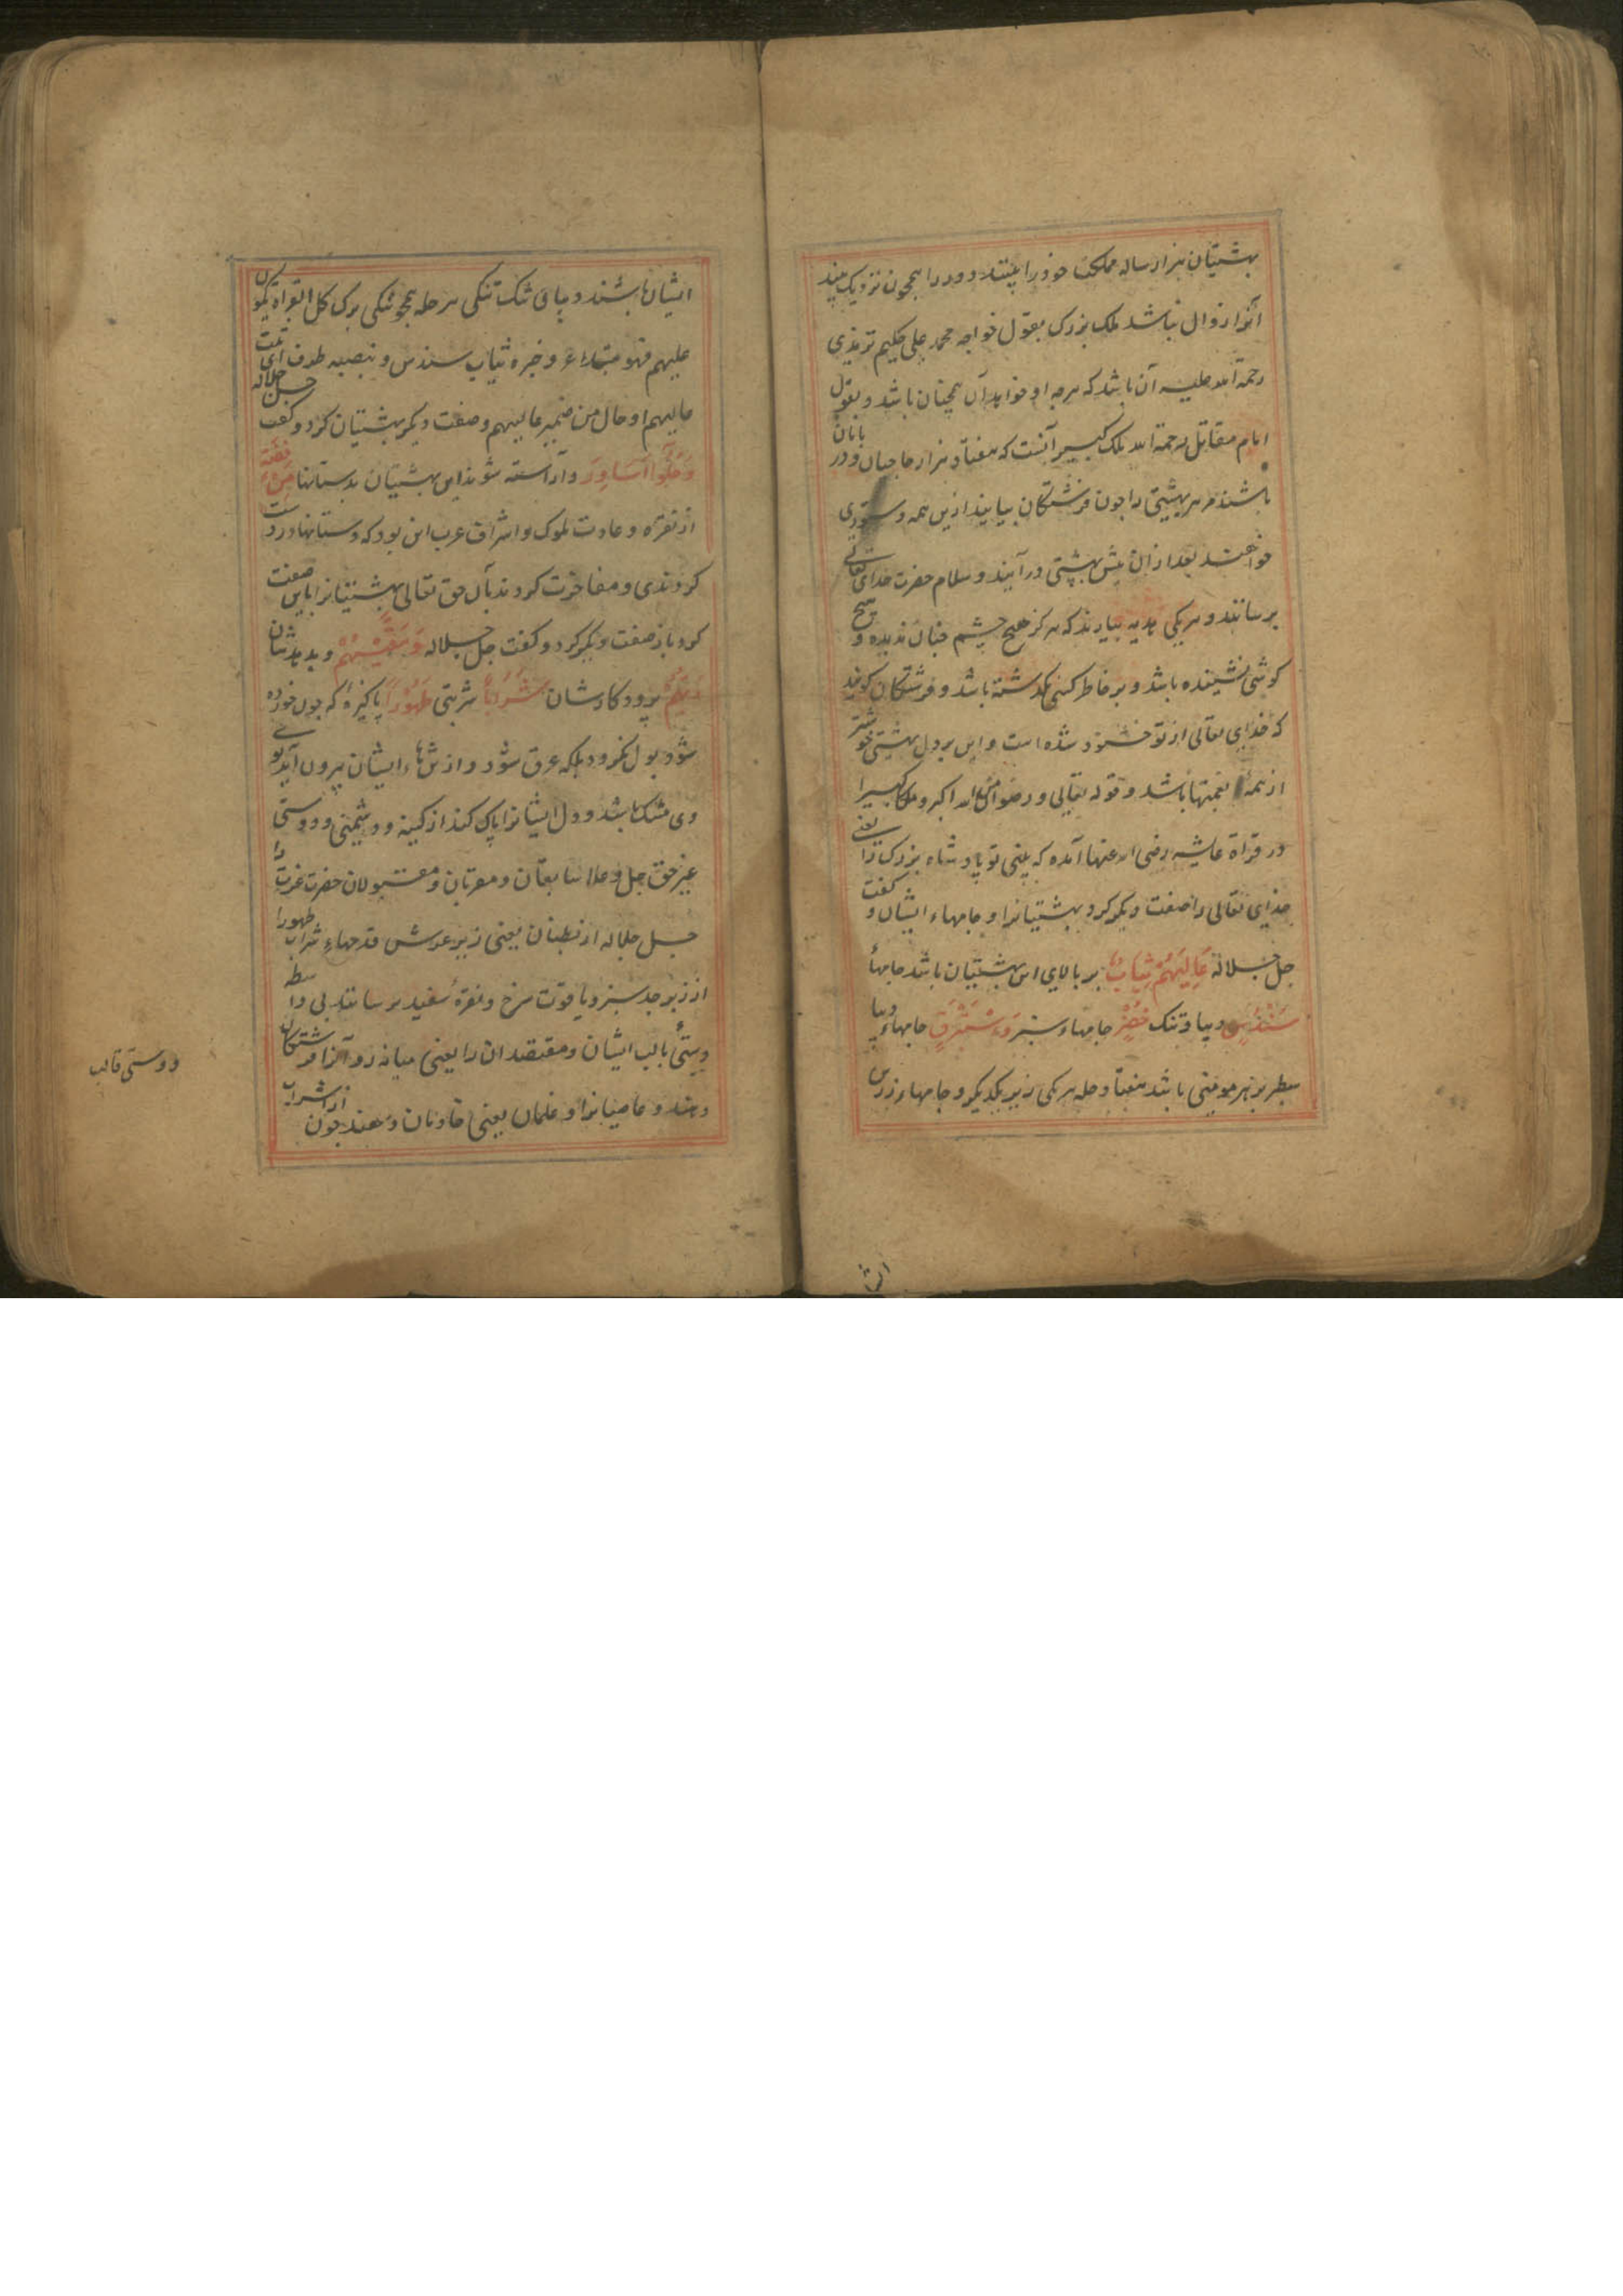 بهشتیان هزار ساله مملکت خود را بینند و دور را همچون نزدیک بیند
آنرا زوال نباشد ملک بزرک بقول خواجه محمد علی حکیم ترمذی
رحمة الله علیه آن باشد که هرچه او خواهد آن همچنان باشد و بقول
امام مقاتل رحمة الله ملک کبیر آنست که هفتاد هزار حاجبان و دربانان
باشند مر هر بهشتی را چون فرشتکان بیایند ازین همه دستوری
خواهند بعد ازان پیش بهشتی درآیند و سلام حضرت خدای تعالی
برسانند و هر یکی هدیه بیارند که هرکز هیچ چشم چنان ندیده و هیچ
کوشی نشنیده باشد و بر خاطر کسی نکذشته باشد و فرشتکان کویند
که خدای تعالی از تو خشنود شده است و این بر دل بهشتی خوشتر
از همهٔ نعمتها باشد و قوله تعالی و رضوان من الله اکبر و ملکا کبیرا
در قراة عایشه رضی الله عنها آمده که بینی تو پادشاه بزرک را یعنی
خدای تعالی را صفت دیکر کرد بهشتیانرا و جامهاء ایشان و کفت
جل جلاله عَالِیَهُمْ ثِیَابُ بر بالای این بهشتیان باشد جامهأ
سُنْدُسٍ دیباء تنک خُضْرٌ جامهاء سبز وَاِسْتَبْرَقٍ جامهاء دیبا
سطبر بر هر مومنی باشد هفتاد حله هر یکی زیر یکدیکر و جامهاء زرین
ایشان
ایشان باشند و دیبای تنک تنکی هر حله همچو تنکی برک کل القراة بسکون
علیهم فهو مبتداء و خبره ثیاب سندس و نصبه ظرف ای تحت
عالیهم او حال من ضمیر عالیهم و صفت دیکر بهشتیان کرد و کفت جل جلاله
وَحُلُّوا اَسَاوِرَ و آراسته شوند این بهشتیان بدستانها مِنْ فِضَّةٍ
از نقره و عادت ملوک و اشراف عرب این بود که دستانها در دست
کردندی و مفاخرت کردند بآن حق تعالی بهشتیانرا باین صفت
کرد باز صفت دیکر کرد و کفت جل جلاله وَسَقٰیهُمْ و بدهدشان
رَبُّهُمْ پرورد کارشان شَرَابًا شربتی طَهُورًا پاکیزهٔ که چون خورده
شود بول نکرد بلکه عرق شود و از تنهاء ایشان بیرون آید بوی
وی مشک باشد و دل ایشانرا پاک کند از کینه و دشمنی و دوستی
غیر حق جل و علا سابقان و مقربان و مقبولان حضرت عزت را
جل جلاله از بطنان یعنی زیر عرش قدحهاء شراب طهورا
از زبرجد سبز و یاقوت سرخ و نقرهٔ سفید برسانند بی واسطه
دستی بالب ایشان و مقتصدان را یعنی میانه رو آنرا فرشتکان
دهند و عاصیانرا و غلمان یعنی خادمان دهند چون از شراب
دوستی قالب